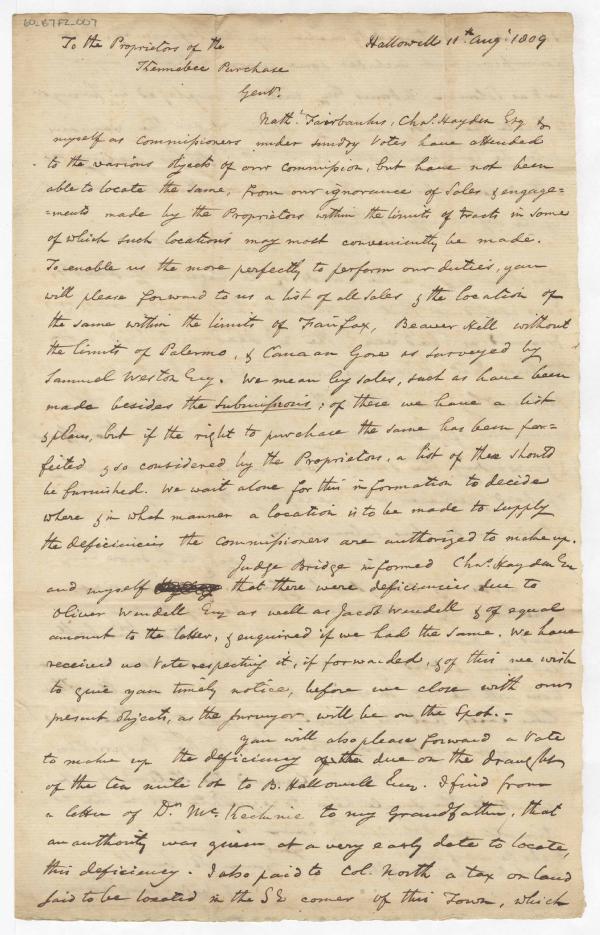 60_B7F2_007
To the Proprietors of the Hallowell 11th Augt. 1809
Kennebec Purchase
Gent.
Nathl. Fairbanks, Chas. Hayden Esq &
myself as Commissioners under sundry Votes have attended
to the various objects of our commission, but have not been
able to locate the same, from our ignorance of Sales & engage=
=ments made by the Proprietors within the limits of tracts in some
of which such locations may most conveniently be made.
To enable us the more perfectly to perform our duties, you
will please forward to us a list of all sales & the location of
the same within the limits of Fairfax, Beaver Hill without
the limits of Palermo, & Canaan Gore as surveyed by
Samuel Weston Esq. We mean by sales, such as have been
made besides the submissions; of these we have a list
& plans, but if the right to purchase the same has been for=
feited & so considered by the Proprietors, a list of these should
be furnished. We wait alone for this information to decide
where & in what manner a location is to be made to supply
the deficiencies the commissioners are authorized to make up.
Judge Bridge informed Chas. Hayden Esq
and myself that there were deficiencies due to
Oliver Wendell Esq as well as Jacob Wendell & of equal
amount to the latter, & enquired if we had the same. We have
received no Vote respecting it, if forwarded, & of this we wish
to give you timely notice, before we close with our
present objects, as the Surveyor will be on the Spot. -
You will also please forward a Vote
to make up the deficiency due on the draught
of the ten mile lot to B. Hallowell Esq. I find from
a letter of Dn. McKechnie to my Grandfather, that
an authority was given at a very early date to locate
this deficiency. I also paid to Col. North a tax on land
said to be located in the SE corner of this Town, which